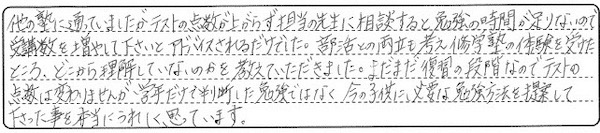 他の塾に通っていましたがテストの点数が上がらず担当の先生に相談すると勉強の時間が足りないので
受講数を増やして下さいとアドバイスされるだけでした。部活との両立も考え個学塾の体験を受けた
ところ、どこから理解していないのかを教えていただきました。まだまだ復習の段階なのでテストの
点数は変わりませんが、学年だけで判断した勉強ではなく今の子供に必要な勉強方法を提案して
下さった事を本当にうれしく思っています。